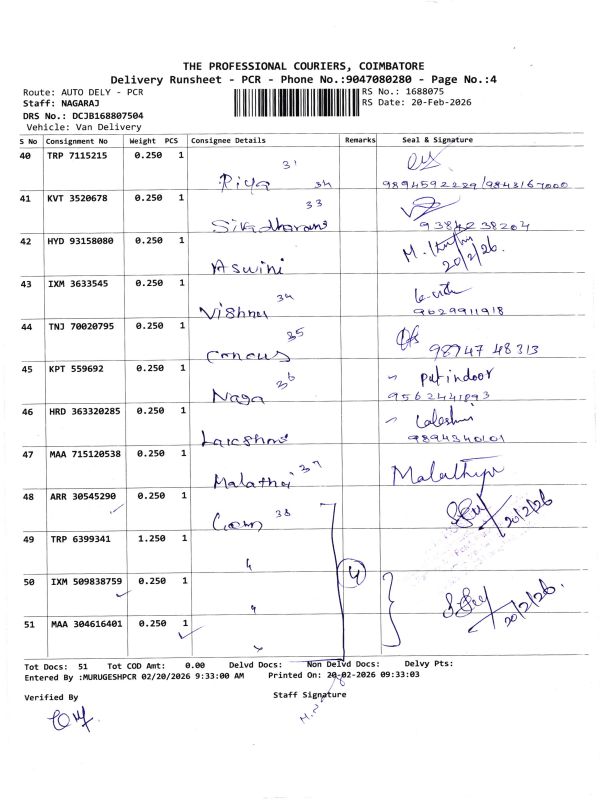 THE PROFESSIONAL COURIERS, COIMBATORE
Delivery Runsheet - PCR - Phone No.:9047080280 - Page No.:4
Route: AUTO DELY - PCR RS No.: 1688075
Staff: NAGARAJ RS Date: 20-Feb-2026
DRS No.: DCJB168807504
Vehicle: Van Delivery
S No Consignment No Weight PCS Consignee Details Remarks Seal & Signature
40 TRP 7115215 0.250 1 31
Priya 34 9894592229/9843167000
41 KVT 3520678 0.250 1 33
9384238204
42 HYD 93158080 0.250 1
Aswini 20/2/26.
43 IXM 3633545 0.250 1 34
Vishnu 9629911918
44 TNJ 70020795 0.250 1 35
98947 48313
45 KPT 559692 0.250 1 36 Patindoor
Naga
46 HRD 363320285 0.250 1
9894340101
47 MAA 715120538 0.250 1 37
Malathi
48 ARR 30545290 0.250 1 38 20/2/26
49 TRP 6399341 1.250 1
50 IXM 509838759 0.250 1 4
51 MAA 304616401 0.250 1 20/2/26.
Tot Docs: 51 Tot COD Amt: 0.00 Delvd Docs: Non Delvd Docs: Delvy Pts:
Entered By :MURUGESHPCR 02/20/2026 9:33:00 AM Printed On: 20-02-2026 09:33:03
Verified By Staff Signature